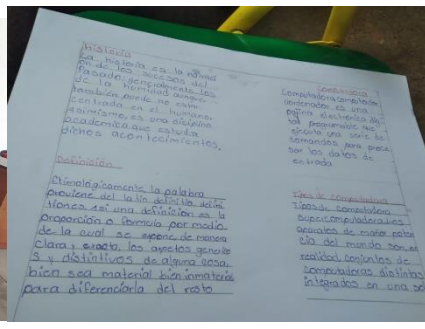 historia
La historia es la narraci
ón de los sucesos del
Pasado; generalmente los
de la humidad aunque
también puede no estar
centrada en el humano.
Asimismo, es una disciplina
academica que estudia
dichos acontecimientos.
Definisión
Etimológicamente la palabra
proviene del latín definitio, defini
tiones así una definición es la
proporción o formula por medio
de la cual se expone de manera
clara y exacta, los aspectos generico
s y distintivos de alguna cosa,
bien sea material bien inmaterial
para diferenciarla del resto
Computadora
Computadora, computador
u ordenador es una
máquina electrónica digi
tal programable que
ejecuta una serie de
comandos para proce
sar los datos de
entrada
Tipos de computadora
Tipos de computadora
Supercomputadoras las
de mayor poten
cia del mundo son en
realidad conjuntos de
computadoras distintas
integradas en una so